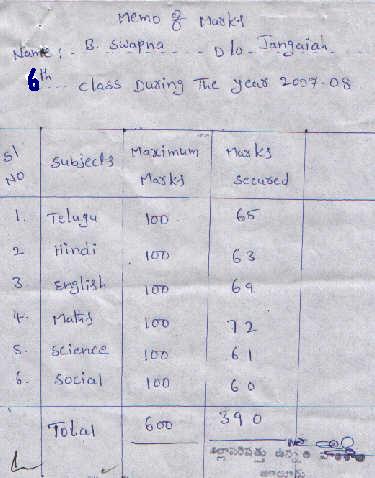 Memo of Marks
Name :- B. Swapna D/o Jangaiah
6th class During The year 2007-08
Sl No Subjects Maximum Marks Marks Secured
1. Telugu 100 65
2 Hindi 100 63
3 English 100 69
4. Maths 100 72
5. Science 100 61
6. Social 100 60
Total 600 390